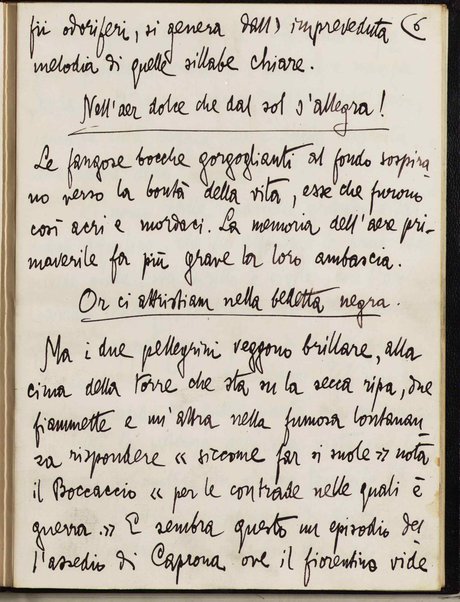 fii odoriferi, si genera dall' impreveduta 6
melodia di quelle sillabe chiare.
Nell'aer dolce che dal sol s'allegra!
Le fangose bocche gorgoglianti al fondo sospira
no verso la bontà della vita, esse che furono
così acri e mordaci. La memoria dell'aere pri-
maverile fa più grave la loro ambascia.
Or ci attristiam nella belletta negra.
Ma i due pellegrini veggono brillare, alla
cima della torre che sta su la secca ripa, due
fiammette e un'altra nella fumosa lontanan
za rispondere « siccome far si suole » nota
il Boccaccio « per le contrade nelle quali è
guerra. » E sembra questo un episodio del
l'assedio di Caprona ove il fiorentino vide